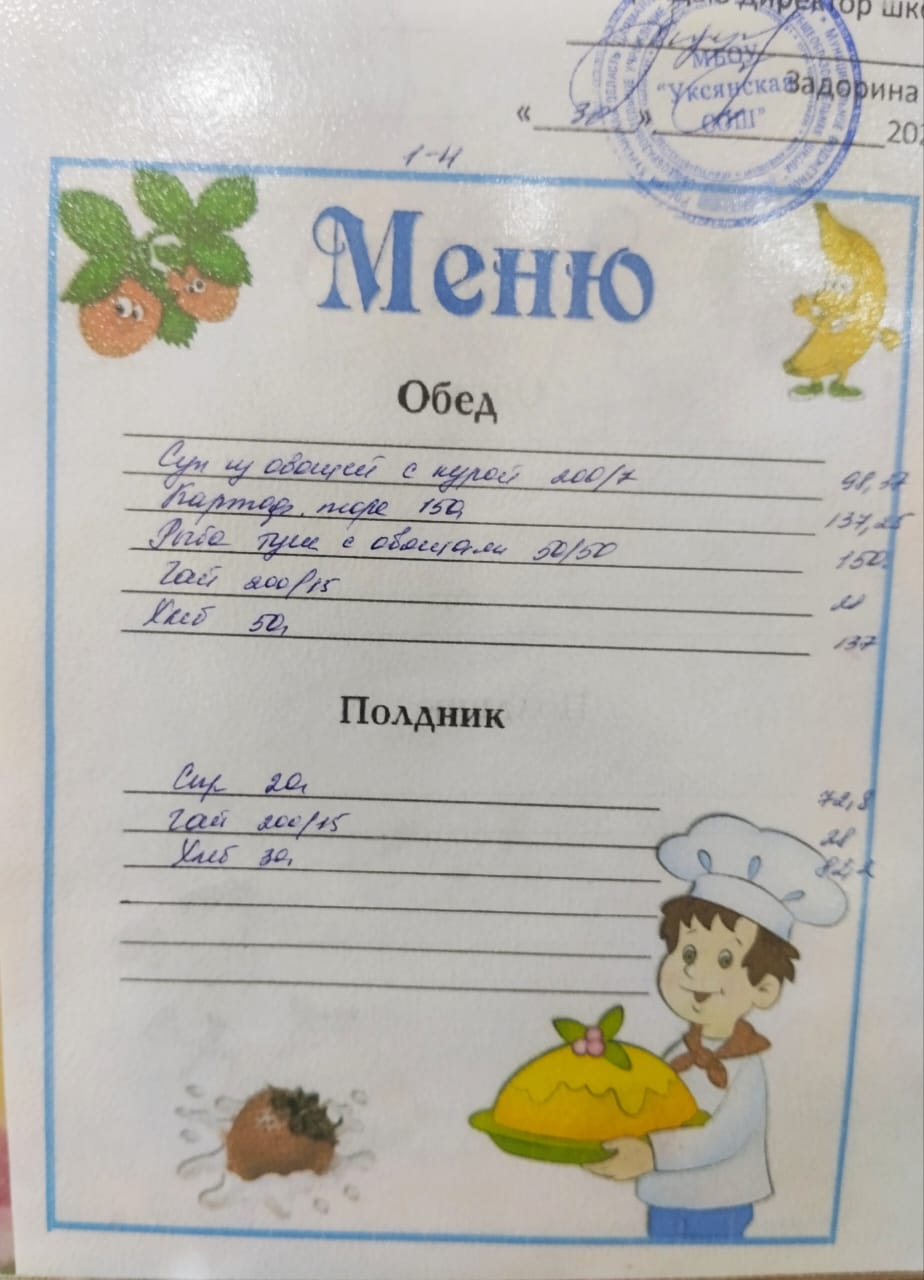 директор шк
МБОУ
"Уксянская
СОШ"
Задорина
« 30 » 202
1-4
Меню
Обед
Суп из овощей с курой 200/7 98,37
Картоф. пюре 150, 137,25
Рыба туш с овощами 50/50 150,
Чай 200/15 28
Хлеб 50, 137
Полдник
Сыр 20, 72,8
Чай 200/15 28
Хлеб 30, 82,2